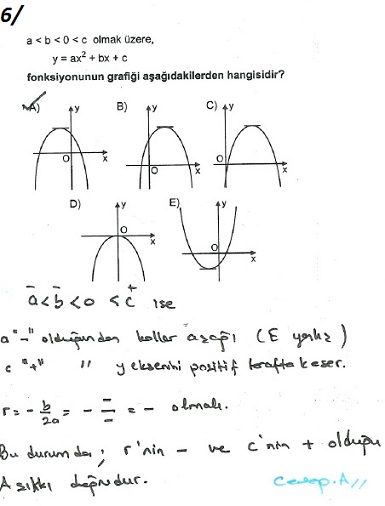 6/
a < b < 0 < c olmak üzere,
y = ax² + bx + c
fonksiyonunun grafiği aşağıdakilerden hangisidir?
A) y B) y C) y
O x O x O x
D) y E) y
O x O x
a < b < 0 < c ise
- - +
a "-" olduğundan kollar aşağı (E yanlış)
c "+" " y eksenini pozitif tarafta keser.
r = - b/2a = - -/- = - olmalı.
Bu durumda; r'nin - ve c'nin + olduğu
A şıkkı doğrudur. Cevap.A//